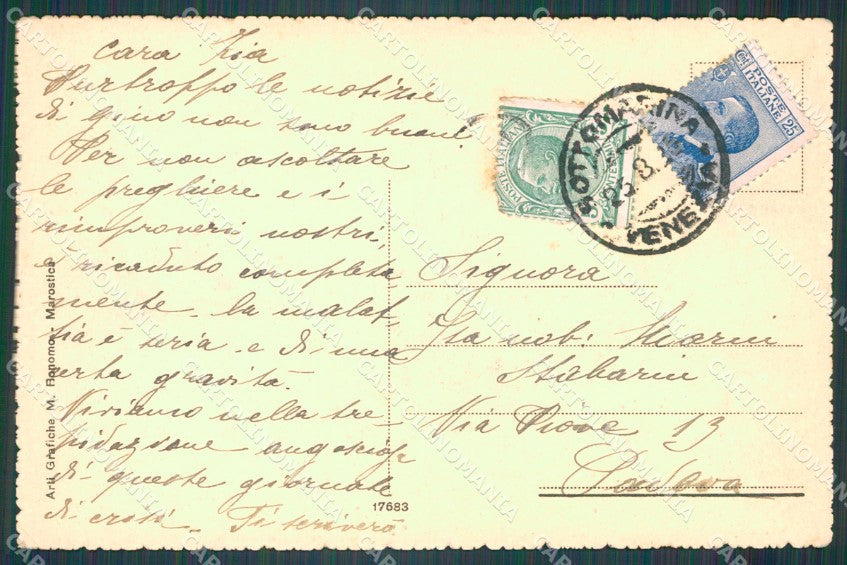 Cara Zia
Purtroppo le notizie
di Gino non sono buone!
Per non ascoltare
le preghiere e i
rimproveri nostri,
è ricaduto completa
mente. La malat-
tia è seria e di una
certa gravità.
Viviamo nella tre-
pidazione angosciosa
di queste giornate
di crisi. Ti scriverò
Arti Grafiche M. Bonomo - Marostica
17683
POSTE ITALIANE
POSTE ITALIANE
25
SOTTOMARINA
VENEZIA
Signora
nob: Marin
Via Piove 13
Padova
CARTOLINOMANIA